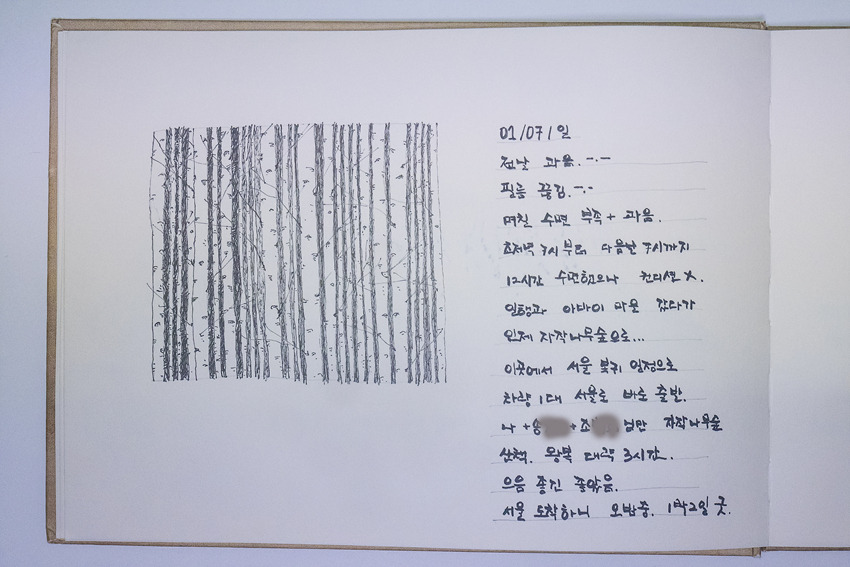 01/07/일
전날 과음. -.-
필름 끊김. -.-
며친 수면 부족 + 과음.
초저녁 7시부터 다음날 7시까지
12시간 수면했으나 컨디션 X.
일행과 아바이 마을 갔다가
인제 자작나무숲으로...
이곳에서 서울 복귀 일정으로
차량 1대 서울로 바로 출발.
나 + 송 + 조 님만 자작나무숲
산책. 왕복 대략 3시간.
으음 좋긴 좋았음.
서울 도착하니 오밤중. 1박2일 굿.